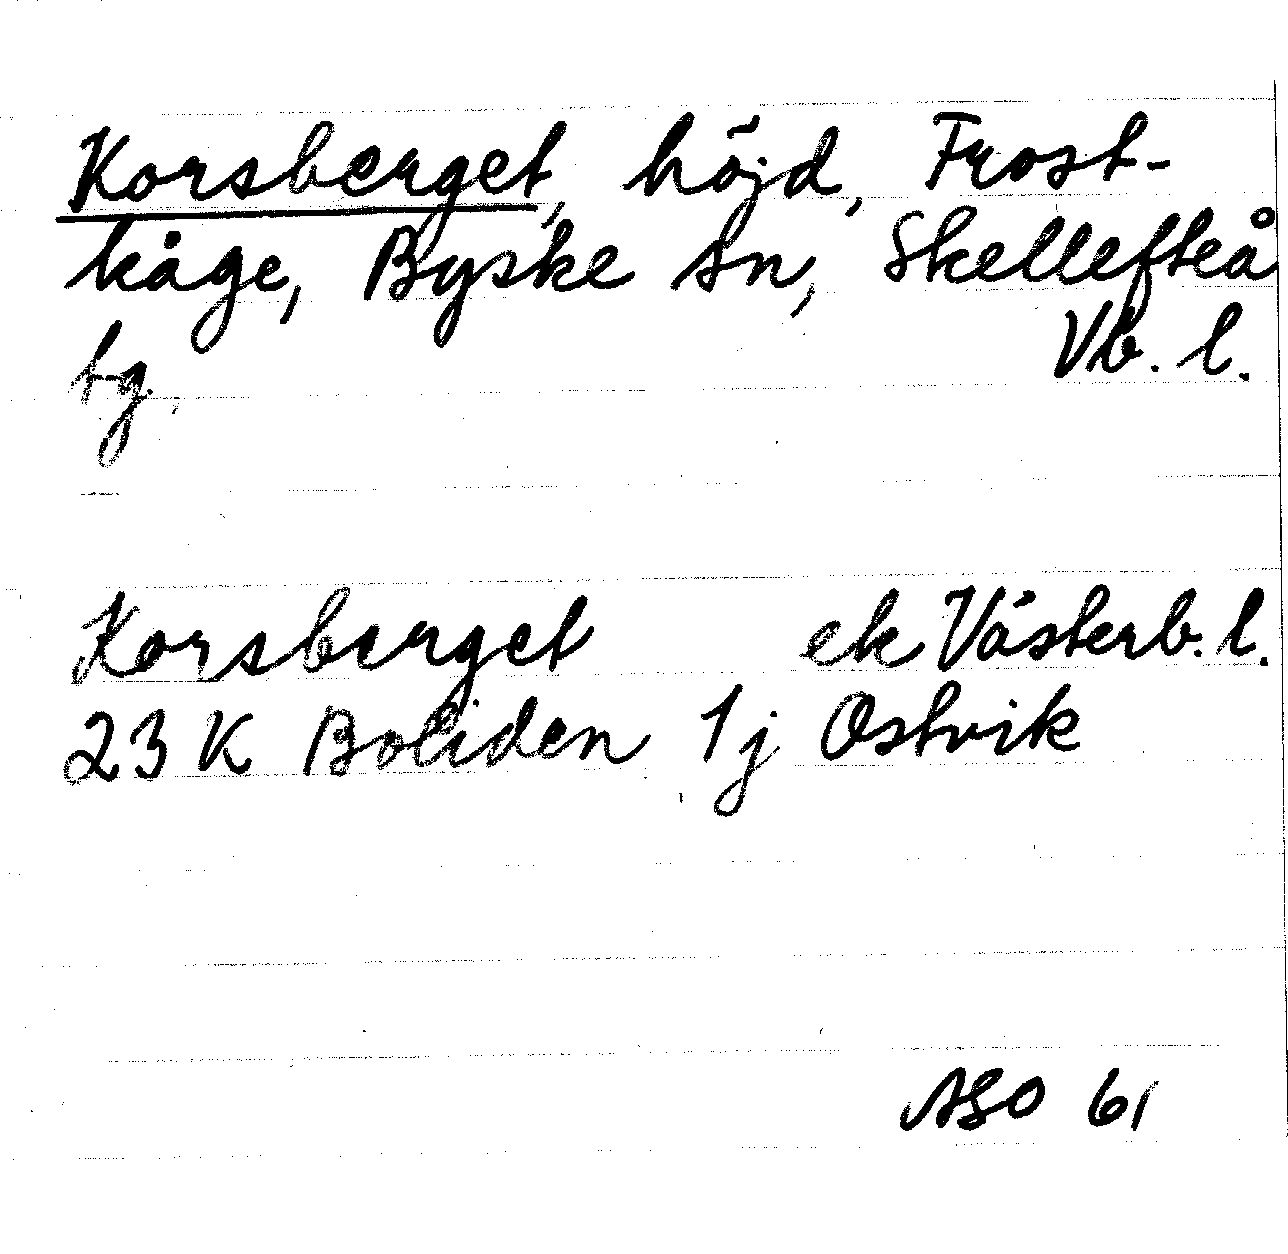 Korsberget, höjd, Frost-
kåge, Byske sn, Skellefteå
tg. Vb. l.
Korsberget ek Västerb. l.
23 K Boliden 1j Ostvik
ASO 61